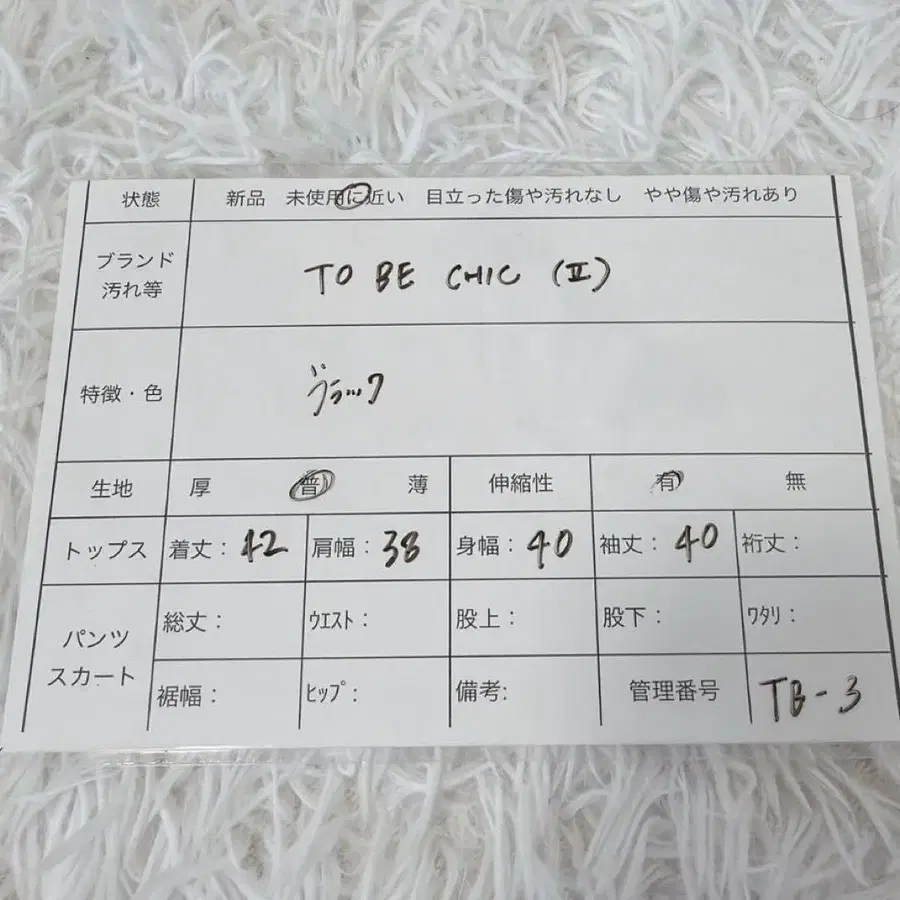 状態 新品 未使用に近い 目立った傷や汚れなし やや傷や汚れあり
ブランド
汚れ等
TO BE CHIC (Ⅱ)
特徴・色 ブラック
生地 厚 普 薄 伸縮性 有 無
トップス 着丈: 42 肩幅: 38 身幅: 40 袖丈: 40 裄丈:
パンツ
スカート
総丈: ウエスト: 股上: 股下: ワタリ:
裾幅: ヒップ: 備考: 管理番号 TB-3